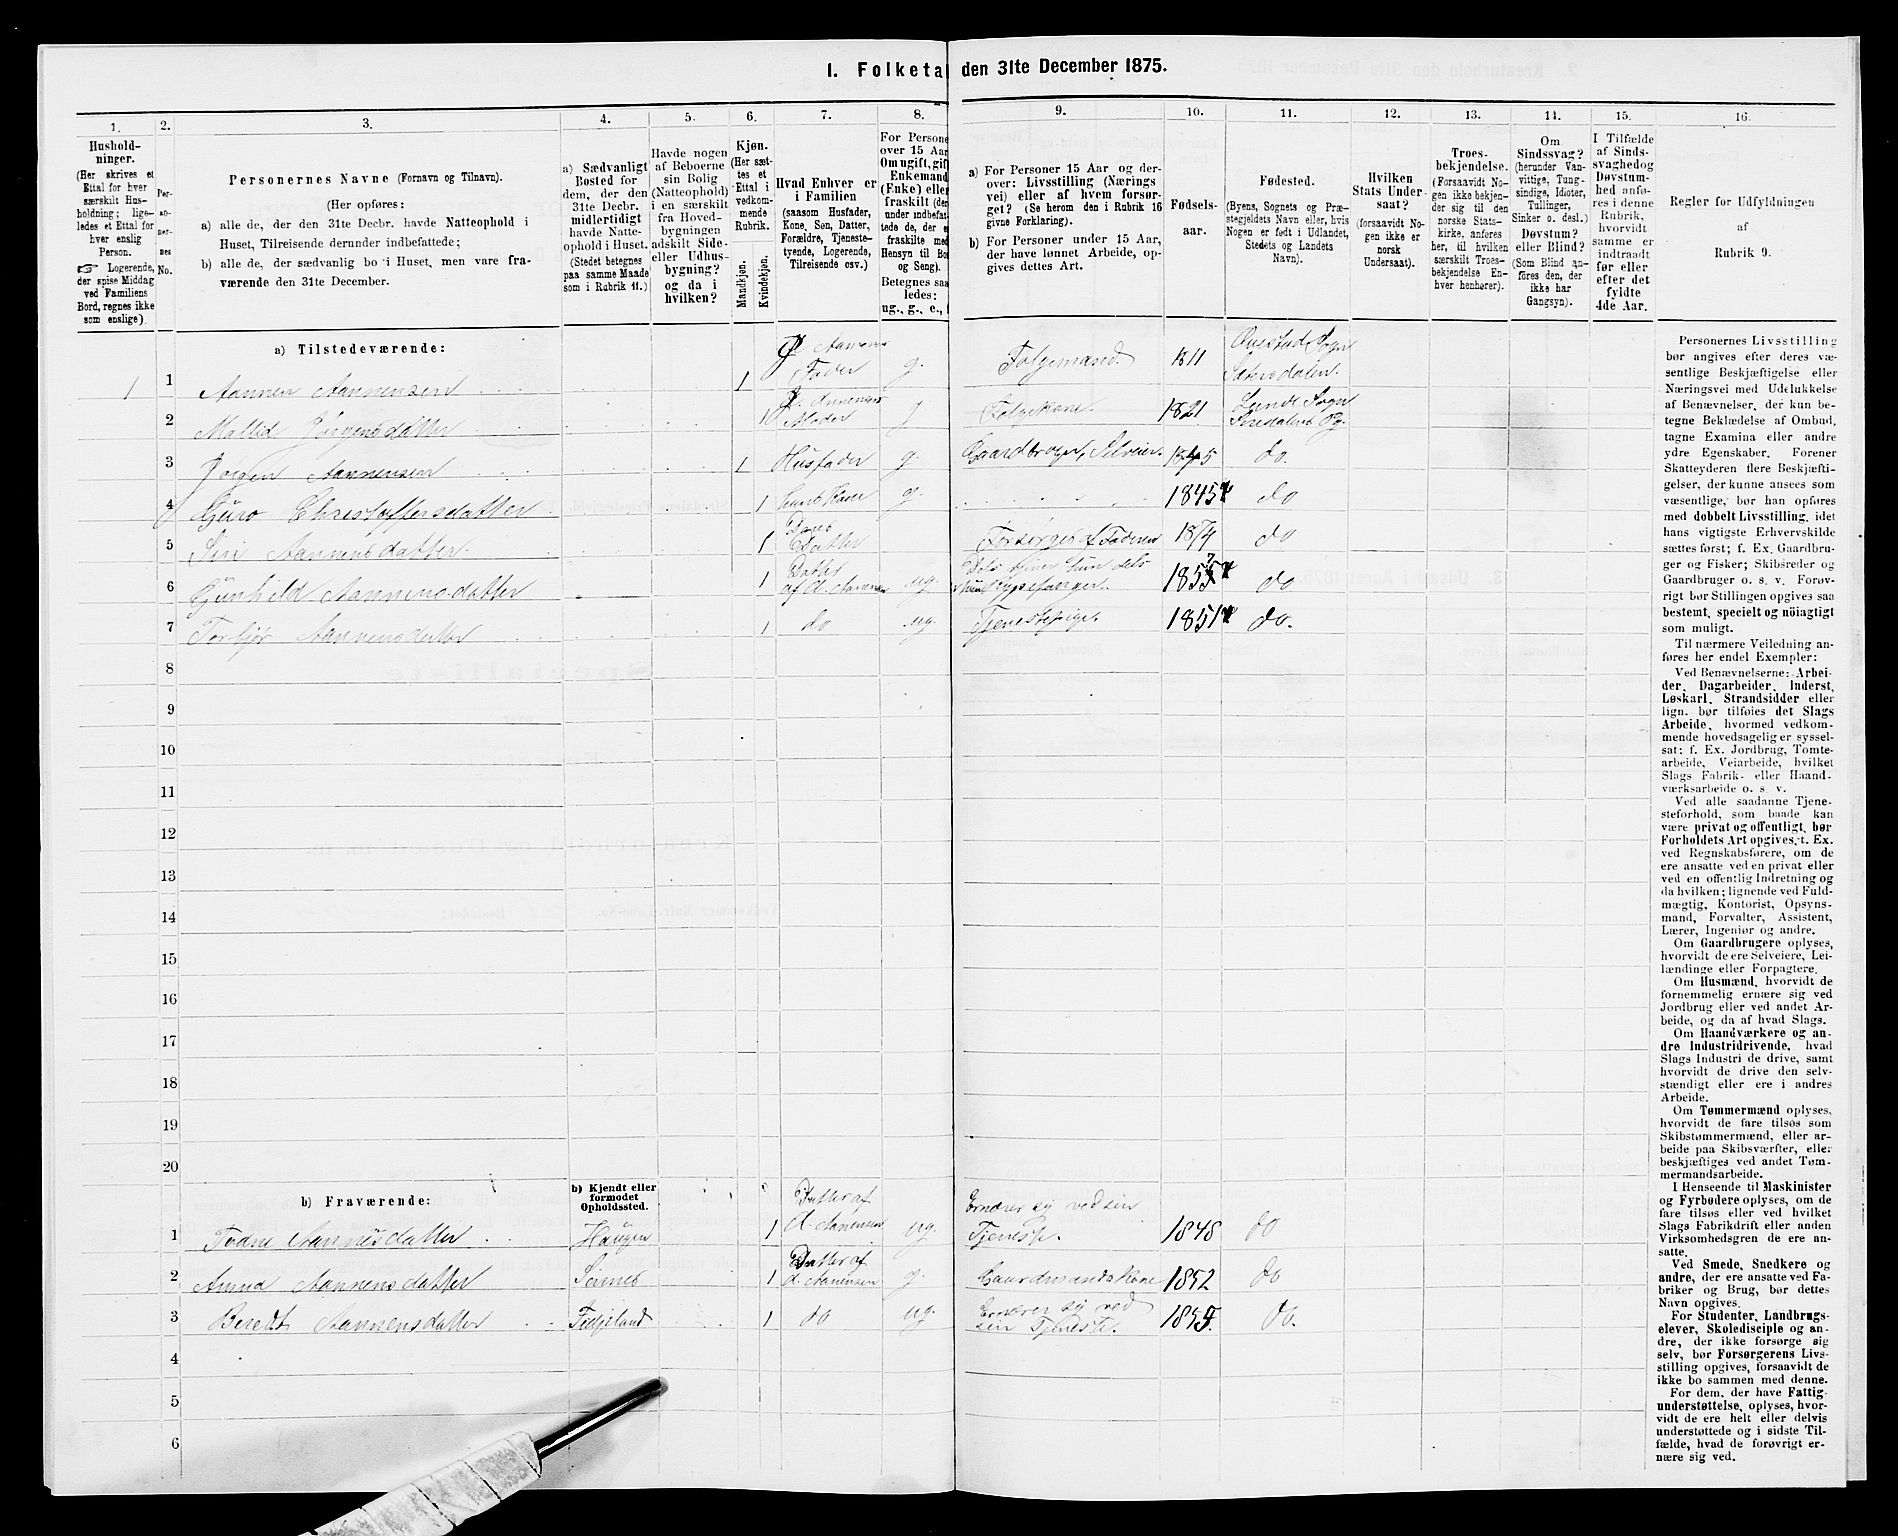 I. Folketa den 31te December 1875.
1.
Hushold-
ninger.
(Her skrives et
Ettal for hver
særskilt Hus-
holdning; lige-
ledes et Ettal for
hver enslig
Person.
☞ Logerende,
der spise Middag
ved Familiens
Bord, regnes ikke
som enslige).
2.
Per-
so-
ner-
nes
No.
3.
Personernes Navne (Fornavn og Tilnavn).
(Her opføres:
a) alle de, der den 31te Decbr. havde Natteophold i
Huset, Tilreisende derunder indbefattede;
b) alle de, der sædvanlig bo i Huset, men vare fra-
værende den 31te December.
4.
a) Sædvanligt
Bosted for
dem, der den
31te Decbr.
midlertidigt
havde Natte-
ophold i Huset.
(Stedet betegnes
paa samme Maade
som i Rubrik 11.)
5.
Havde nogen
af Beboerne
sin Bolig
(Natteophold)
i en særskilt
fra Hoved-
bygningen
adskilt Side-
eller Udhus-
bygning?
og da i
hvilken?
6.
Kjøn.
(Her sæt-
tes et
Ettal i
vedkom-
mende
Rubrik.
Mandkjøn.
Kvindekjøn.
7.
Hvad Enhver er
i Familien
(saasom Husfader,
Kone, Søn, Datter,
Forældre, Tjeneste-
tyende, Logerende,
Tilreisende osv.)
8.
For Persone
over 15 Aar
Om ugift, gift
Enkemand
(Enke) eller
fraskilt (der
under indbefat-
tede de, der e
fraskilte med
Hensyn til Bo
og Seng).
Betegnes saa
ledes:
ug., g., e.,
9.
a) For Personer 15 Aar og der-
over: Livsstilling (Nærings
vei) eller af hvem forsør-
get? (Se herom den i Rubrik 16
givne Forklaring).
b) For Personer under 15 Aar,
der have lønnet Arbeide, op-
gives dettes Art.
10.
Fødsels-
aar.
11.
Fødested.
(Byens, Sognets og Præ-
stegjeldets Navn eller, hvis
Nogen er født i Udlandet,
Stedets og Landets
Navn).
12.
Hvilken
Stats Under-
saat?
(forsaavidt No-
gen ikke er
norsk
Undersaat).
13.
Troes-
bekjendelse.
(Forsaavidt No-
gen ikke bekjen-
der sig til den
norske Stats-
kirke, anføres
her, til hvilken
særskilt Troes-
bekjendelse En-
hver henhører).
14.
Om
Sindssvag?
(herunder Van-
vittige, Tung-
sindige, Idioter,
Tullinger,
Sinker o. desl.)
Døvstum?
eller Blind?
(Som Blind an-
føres den, der
ikke har
Gangsyn).
15.
I Tilfælde
af Sinds-
svaghed og
Døvstum-
hed anfø-
res i denne
Rubrik,
hvorvidt
samme er
indtraadt
før eller
efter det
fyldte
4de Aar.
16.
Regler for Udfyldningen
af
Rubrik 9.
a) Tilstedeværende:
1 1 Aannen Aannensen 1 J. Aannens Fader g. Folgemand 1811 Qvestad Sogn Sætersdalen.
2 Mallid Jørgensdatter 1 J. Annensens Moder g Folgekone. 1821 Lunde Sogn Siredalens Pg.
3 Jørgen Aannensen 1 Husfader g. Gaardbruger, Selveier. 1845 do.
4 Guro Christoffersdatter 1 hans Kone g. 1845 do
5 Siri Aannensdatter 1 Deres Datter Forsørges af Faderen 1874 do
6 Gunhild Aannensdatter 1 Datter af A. Aannensen ug. 1853 do
7 Torbjør Aannensdatter 1 do ug. Tjenestepige. 1851 do.
8
9
10
11
12
13
14
15
16
17
18
19
20
b) Fraværende:
b) Kjendt eller
formodet
Opholdssted.
1 Todne Aannensdatter Haugen 1 Datter af A. Aannensen ug. Ernærer sig ved sin Tjeneste. 1848 do
2 Anna Aannensdatter Sirnes 1 Datter af A. Aanensen g. Gaardmandskone 1852 do
3 Beredt Aannensdatter Fidjeland 1 do ug. Ernærer sig ved sin Tjeneste. 1855. do.
4
5
6
Personernes Livsstilling
bør angives efter deres væ-
sentlige Beskjæftigelse eller
Næringsvei med Udelukkelse
af Benævnelser, der kun be-
tegne Bekladelse af Ombud,
tagne Examina eller andre
ydre Egenskaber. Forener
Skatteyderen flere Beskjæfti-
gelser, der kunne ansees som
væsentlige, bør han opføres
med dobbelt Livsstilling, idet
hans vigtigste Erhvervskilde
sættes først; f. Ex. Gaardbru-
ger og Fisker; Skibsreder og
Gaardbruger o. s. v. Forøv-
rigt bør Stillingen opgives saa
bestemt, specielt og nöiagtigt
som muligt.
Til nærmere Veiledning an-
føres her endel Exempler:
Ved Benævnelserne: Arbei-
der, Dagarbeider, Inderst,
Løskarl, Strandsidder eller
lign. bør tilføies det Slags
Arbeide, hvormed vedkom-
mende hovedsagelig er syssel-
sat; f. Ex. Jordbrug, Tomte-
arbeide, Veiarbeide, hvilket
Slags Fabrik- eller Haand-
værksarbeide o. s. v.
Ved alle saadanne Tjene-
steforhold, som baade kan
være privat og offentligt, bør
Forholdets Art opgives, t. Ex.
ved Regnskabsførere, om de
ere ansatte ved en privat eller
ved en offentlig Indretning og
da hvilken; lignende ved Fuld-
mægtig, Kontorist, Opsyns-
mand, Forvalter, Assistent,
Lærer, Ingeniør og andre.
Om Gaardbrugere oplyses,
hvorvidt de ere Selveiere, Lei-
lændinge eller Forpagtere.
Om Husmænd, hvorvidt de
fornemmelig ernære sig ved
Jordbrug eller ved andet Ar-
beide, og da af hvad Slags.
Om Haandværkere og an-
dre Industridrivende, hvad
Slags Industri de drive, samt
hvorvidt de drive den selv-
stændigt eller ere i andres
Arbeide.
Om Tømmermænd oplyses,
hvorvidt de fare tilsøs som
Skibstømmermænd, eller ar-
beide paa Skibsværfter, eller
beskjæftiges ved andet Tøm-
mermandsarbeide.
I Henseende til Maskinister
og Fyrbødere oplyses, om de
fare tilsøs eller ved hvilket
Slags Fabrikdrift eller anden
Virksomhedsgren de ere an-
satte.
Ved Smede, Snedkere og
andre, der ere ansatte ved Fa-
briker og Brug, bør dettes
Navn opgives.
For Studenter, Landbrugs-
elever, Skoledisciple og an-
dre, der ikke forsørge sig
selv, bør Forsørgerens Livs-
stilling opgives, forsaavidt de
ikke bo sammen med denne.
For dem, der have Fattig-
understøttelse, oplyses, hvor-
vidt de ere helt eller delvis
understøttede og i sidste Til-
fælde, hvad de forøvrigt er-
nære sig ved.